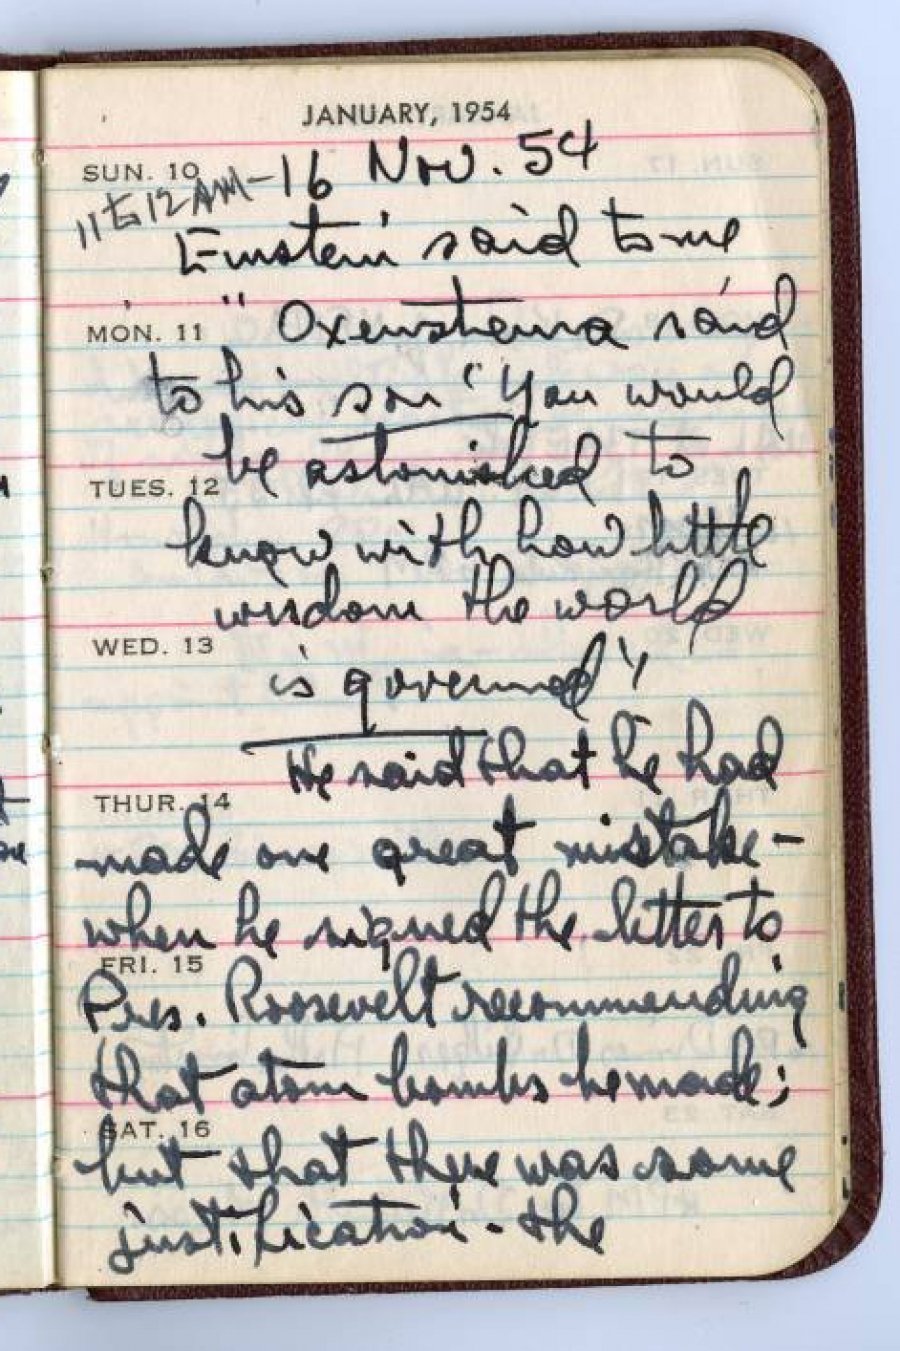 JANUARY, 1954
SUN. 10
11 to 12 AM - 16 Nov. 54
Einstein said to me
MON. 11
" Oxenstierna said
to his son "You would
be astonished to
TUES. 12
know with how little
wisdom the world
WED. 13
is governed"
He said that he had
THUR. 14
made one great mistake -
when he signed the letter to
FRI. 15
Pres. Roosevelt recommending
that atom bombs be made;
SAT. 16
but that there was some
justification - the